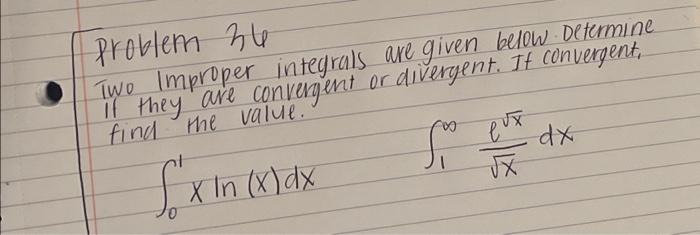 Problem 36
Two Improper integrals are given below. Determine
if they are convergent or divergent. If convergent,
find the value.
∫₀¹ x ln (x) dx    ∫₁^∞ e^√x / √x dx